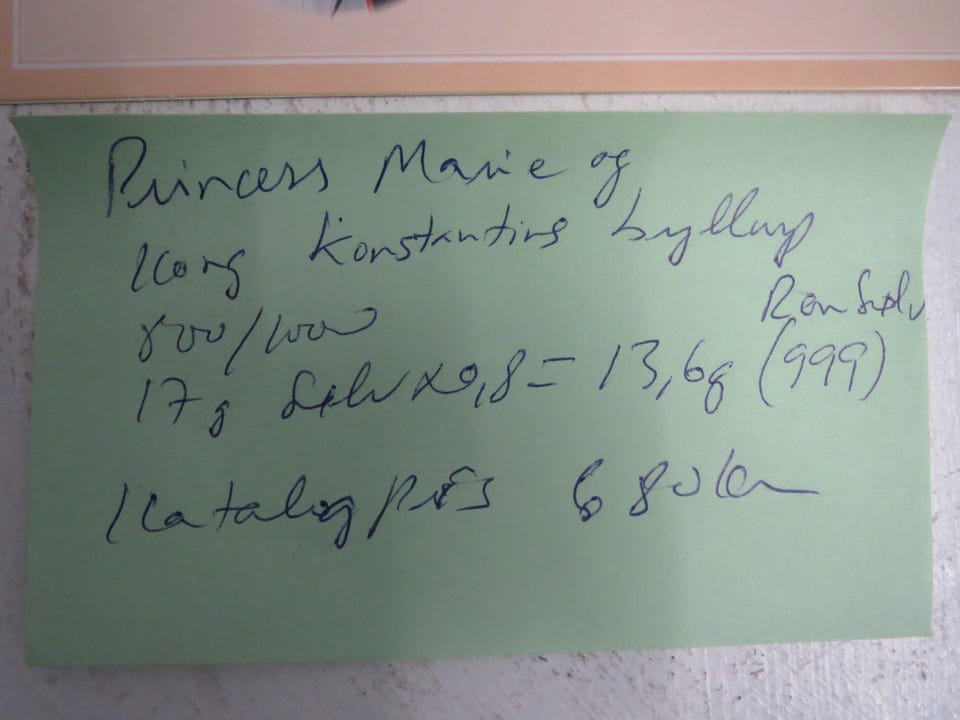 Princess Marie og
Kong Konstantins bryllup
800/1000
Ren Sølv
17g Sølv x0,8= 13,6g (999)
Katalog pris 680kr